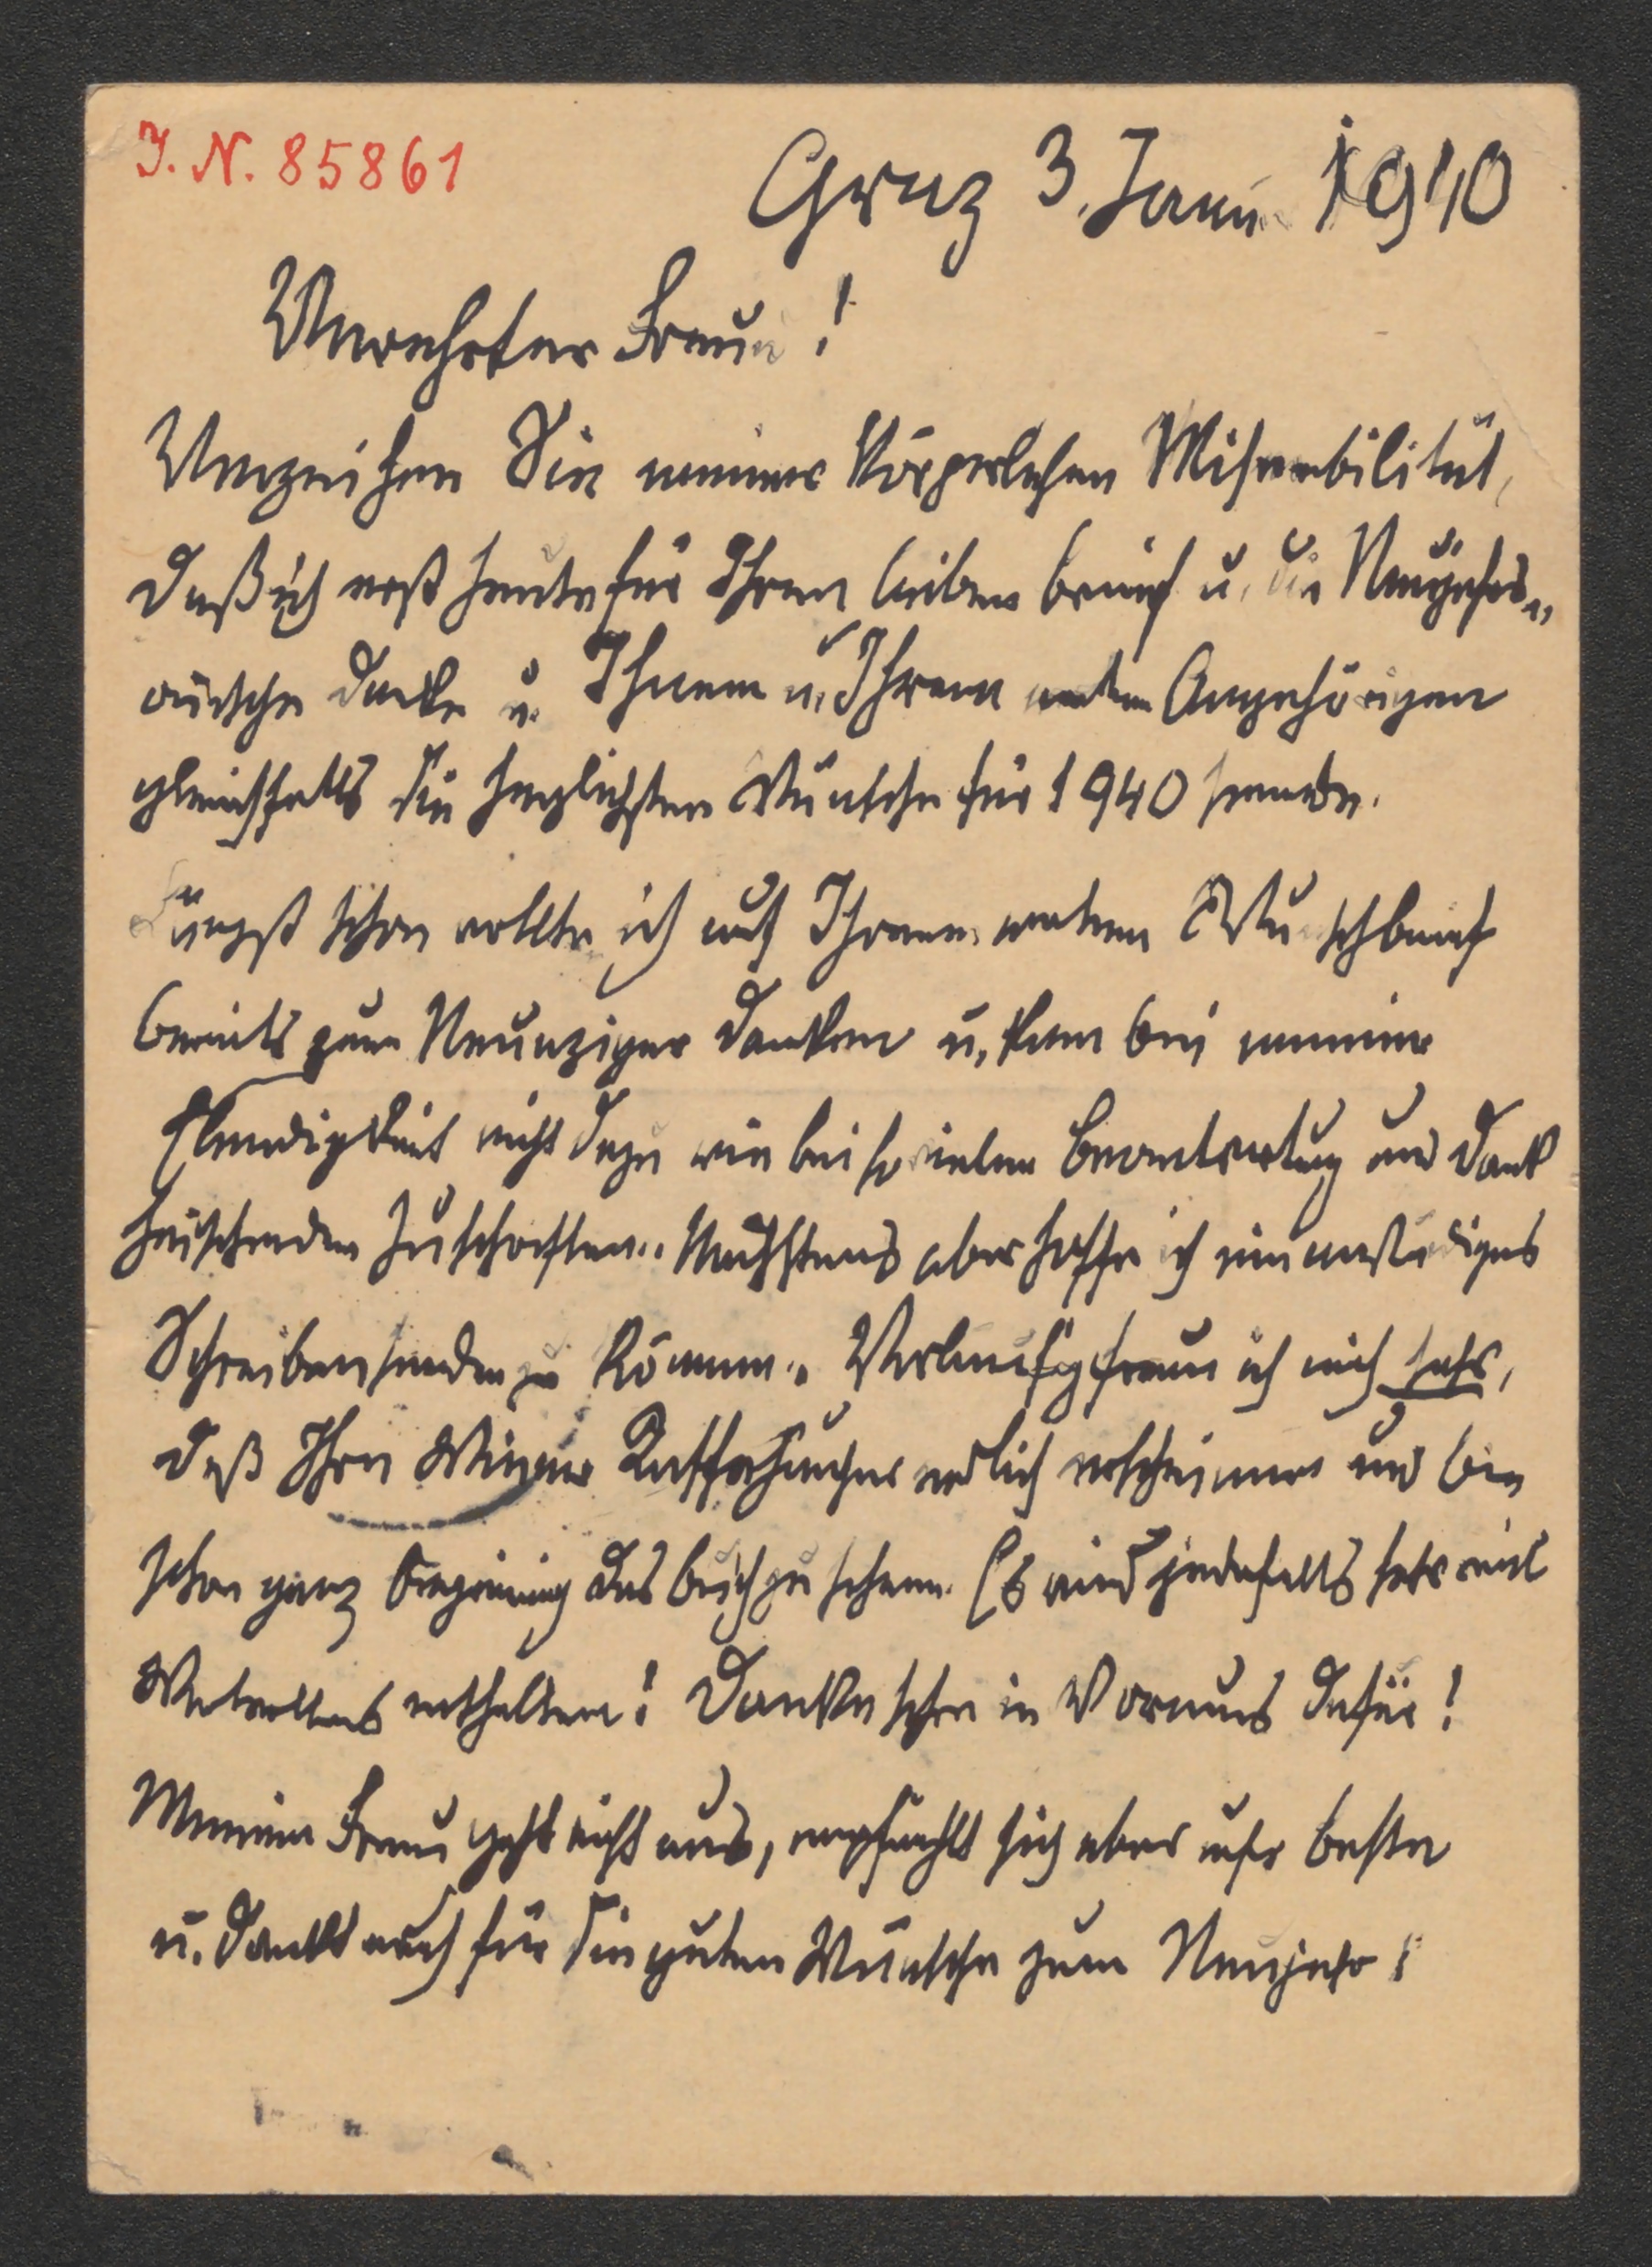 J. N. 85861
Graz 3. Jann. 1940
Verehrter Freund!
Verzeihen Sie meiner körperlichen Miserabilität,
daß ich erst heute für Ihren lieben Brief u. die Neujahrs-
wünsche danke u. Ihnen u. Ihren werten Angehörigen
gleichfalls die herzlichsten Wünsche für 1940 sende.
Längst schon wollte ich auf Ihren werten Wunschbrief
bereits zum Neunziger danken u. kam bei meiner
Elendigkeit nicht dazu wie bei so vielen Beantwortung und Dank
heischenden Zuschriften. Nächstens aber hoffe ich ein anständiges
Schreiben senden zu können. Vorläufig freue ich mich sehr,
daß Ihre Wiener Kaffeehäuser endlich erscheinen und bin
schon ganz begierig das Buch zu sehen. Es wird jedenfalls sehr viel
Wertvolles enthalten! Danke schön im Voraus dafür!
Meine Frau geht nicht aus, empfiehlt sich aber aufs beste
u. dankt auch für die guten Wünsche zum Neujahr!